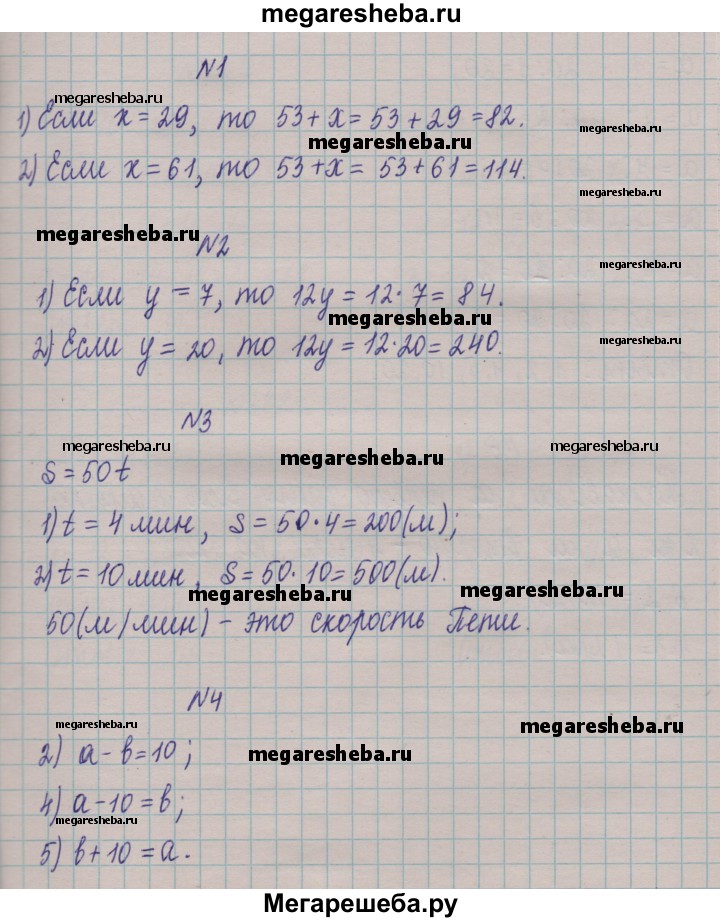 megaresheba.ru
N1
megaresheba.ru
1) Если x = 29, то 53 + x = 53 + 29 = 82.
megaresheba.ru
megaresheba.ru
2) Если x = 61, то 53 + x = 53 + 61 = 114.
megaresheba.ru
megaresheba.ru
N2
megaresheba.ru
1) Если y = 7, то 12y = 12 · 7 = 84.
megaresheba.ru
2) Если y = 20, то 12y = 12 · 20 = 240.
megaresheba.ru
N3
megaresheba.ru
megaresheba.ru
megaresheba.ru
S = 50t
1) t = 4 мин, S = 50 · 4 = 200 (м);
2) t = 10 мин, S = 50 · 10 = 500 (м).
megaresheba.ru
megaresheba.ru
50 (м/мин) - это скорость Пети.
N4
megaresheba.ru
megaresheba.ru
2) a - b = 10;
megaresheba.ru
4) a - 10 = b;
megaresheba.ru
5) b + 10 = a.
Мегарешеба.ру